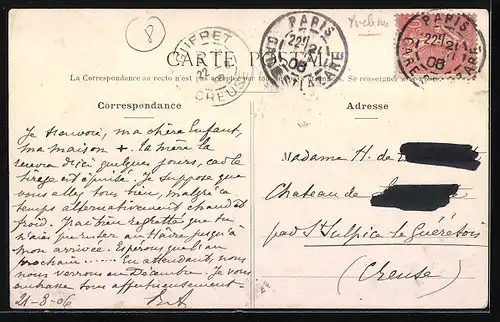 Yvelines
GUERET
22
CREUSE
PARIS
22H 21
06
GARE ST LAZARE
PARIS
22H 21
06
GARE ST LAZARE
CARTE POSTALE
La Correspondance au recto n'est pas acceptée par tous Se renseigner
Correspondance
Adresse
Je t'envoie, ma chère Enfant,
ma maison +. La mère la
recevra d'ici quelques jours, car le
tirage est épuisé. Je suppose que
vous allez tous bien, malgré ce
temps alternativement chaud et
froid. J'ai bien regretté que tu
n'aies pu rester au Hâvre jusqu'à
mon arrivée. Espérons que l'an
prochain ...... En attendant, nous
nous verrons en Décembre. Je vous
embrasse tous affectueusement.
21-8-06
Madame H. de
Chateau de
par St Sulpice le Guérétois
(Creuse)